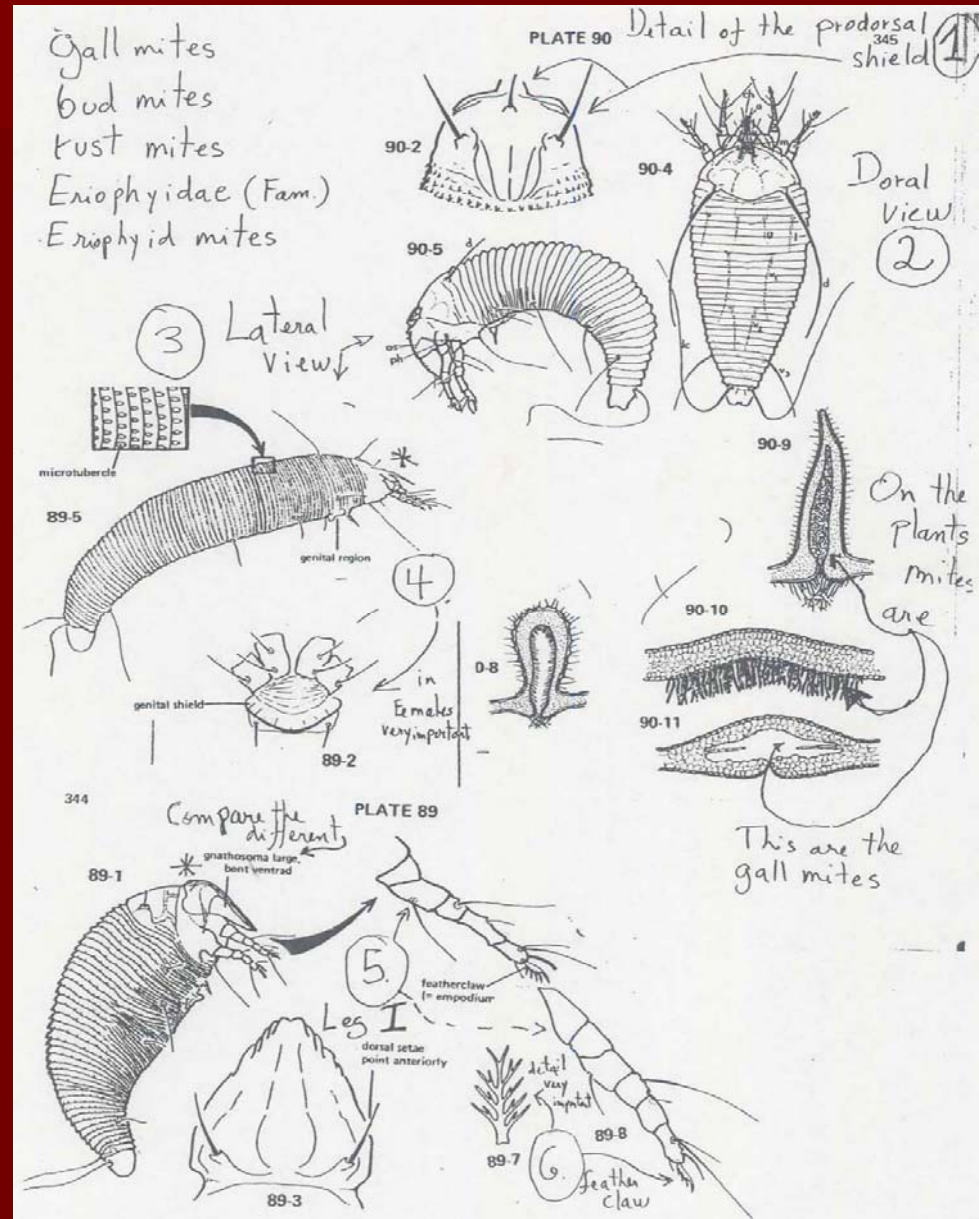 Gall mites
bud mites
rust mites
Eriophyidae (Fam.)
Eriophyid mites
PLATE 90
Detail of the prodorsal
345
shield
1
90-2
90-4
Doral
view
2
90-5
d
os
ph
d
3
Lateral
View
microtubercle
89-5
genital region
4
genital shield
89-2
in
Females
very important
90-9
On the
plants
mites
are
90-10
0-8
90-11
This are the
gall mites
344
PLATE 89
Compare the
different
89-1
gnathosoma large,
bent ventrad
5.
featherclaw
(= empodium
Leg I
dorsal setae
point anteriorly
89-3
detail
very
important
89-7
89-8
6.
feather
claw